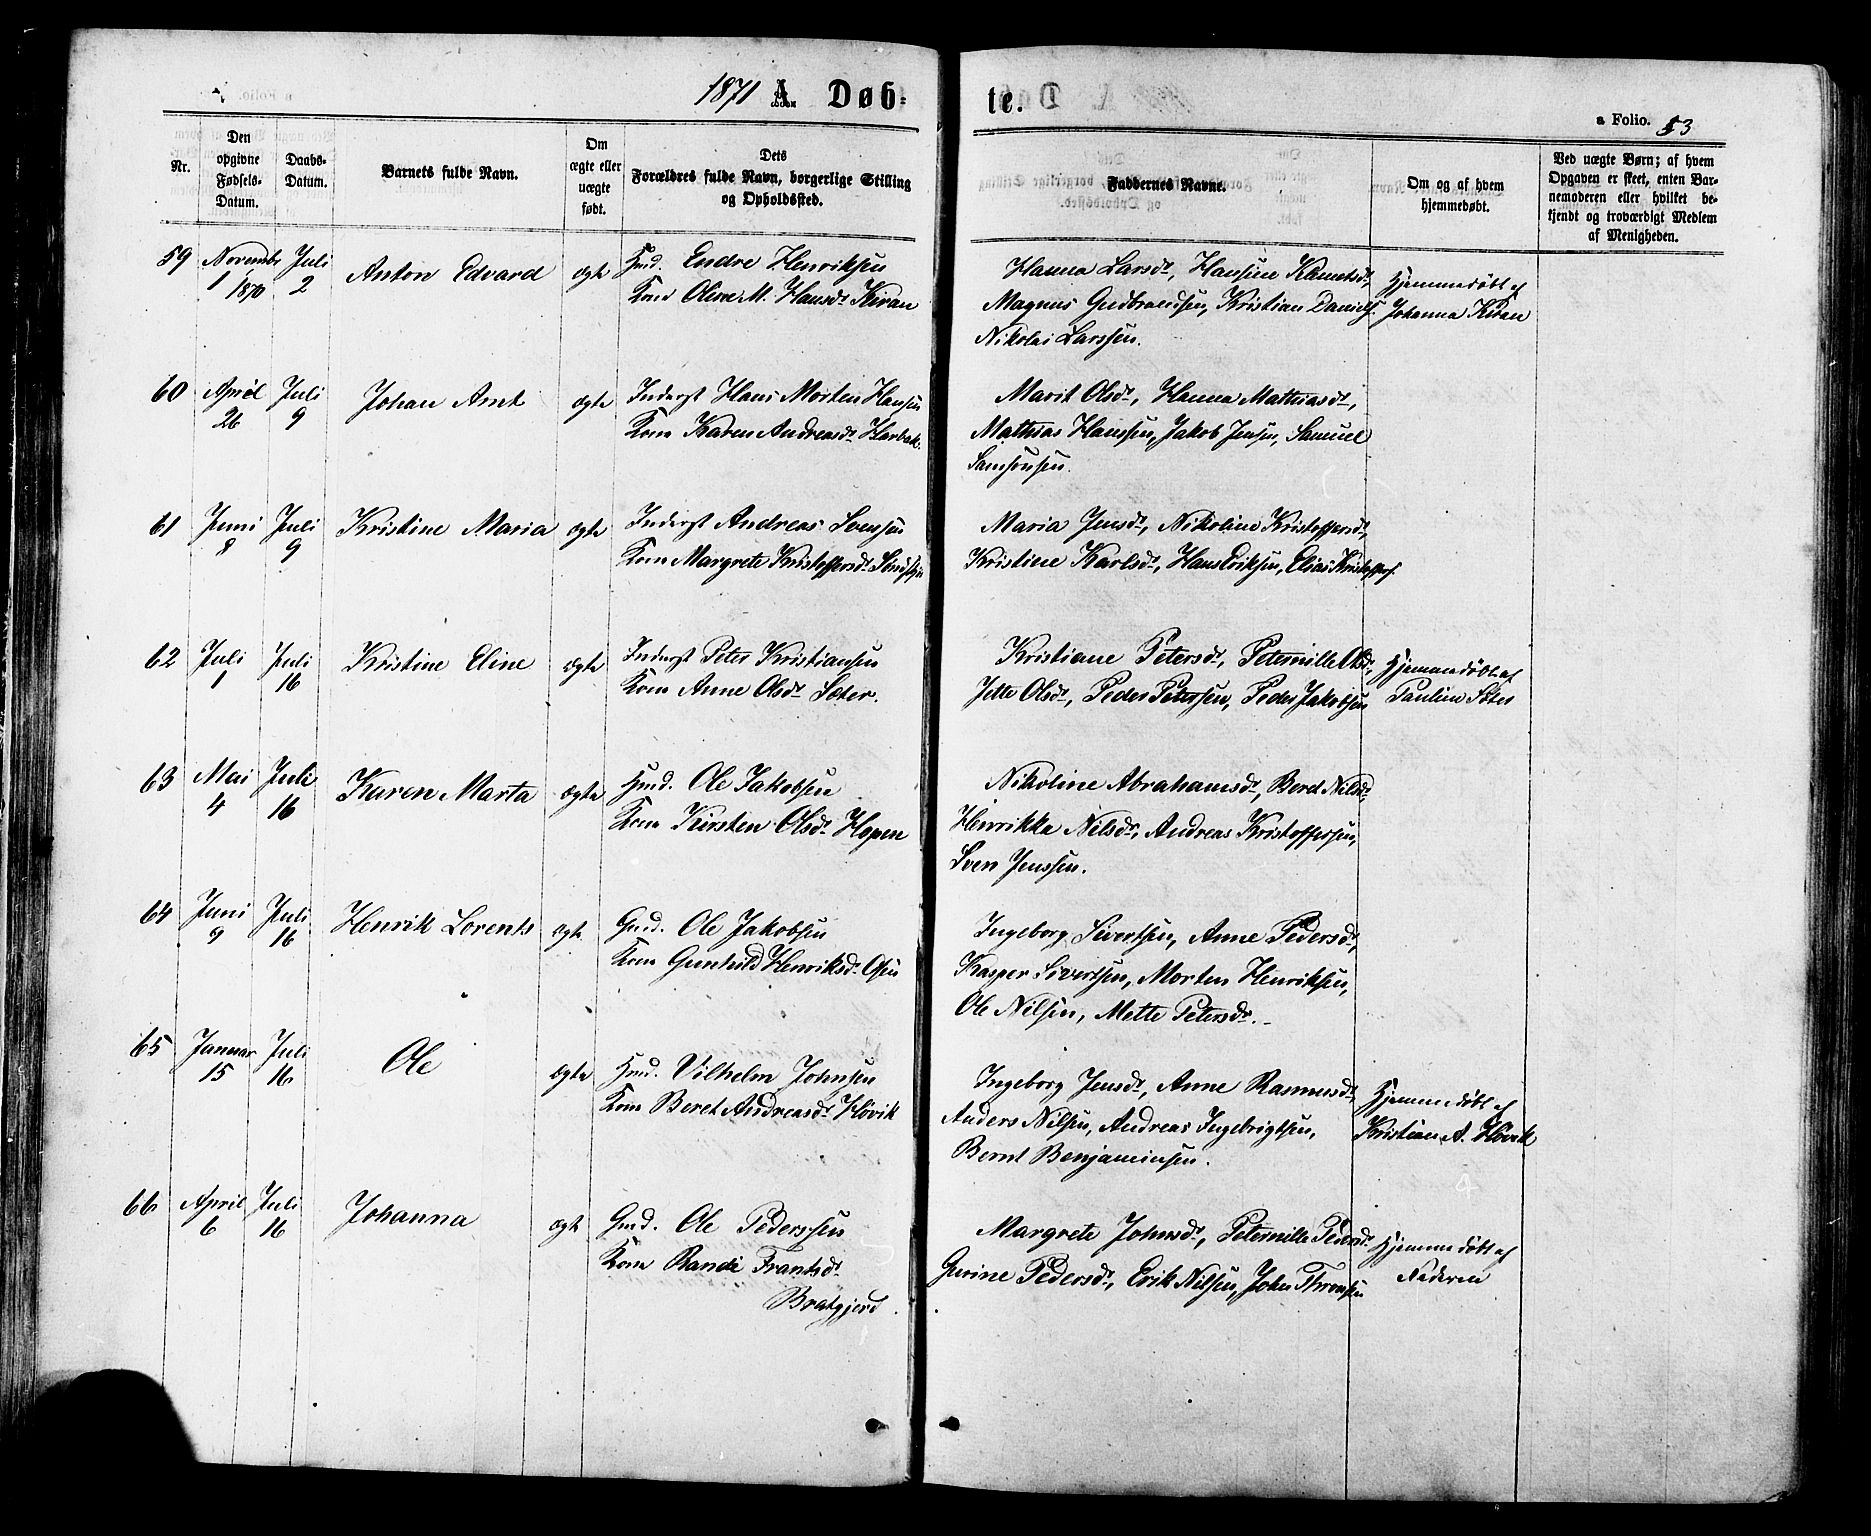 1871 A Døb-
te.
a Folio. 53
Nr.
Den opgivne Fødsels-Datum.
Daabs-Datum.
Barnets fulde Navn.
Om ægte eller uægte født.
Dets Forældres fulde Navn, borgerlige Stilling og Opholdssted.
Faddernes Navne.
Om og af hvem hjemmedøbt.
Ved uægte Børn; af hvem Opgaven er skeet, enten Barnemoderen eller hvilket bekjendt og troværdigt Medlem af Menigheden.
59 Novembr 1 1870 Juli 2 Anton Edvard ægte Hmd. Endre Henriksen
Kone Oline M. Hansdr Kiran
Hanna Larsdr, Hansine
Magnus Gudbrandsen, Kristian Daniels.
Nikolai Larssen.
Hjemmedøbt af
Johanna Kiran
60 April 26 Juli 9 Johan Arnt ægte Inderst Hans Morten Hansen
Kone Karen Andreasdr Harbak.
Marit Olsdr, Hanna Mathiasdr,
Mathias Hanssen, Jakob Jensen, Samuel
Samsonsen.
61 Juni 8 Juli 9 Kristine Maria ægte Inderst Andreas Svensen
Kone Margrete Kristoffersdr
Maria Jensdr, Nikoline Kristoffersdr,
Kristine Karlsdr, Hans Eriksen, Elias Kristoffers.
62 Juli 1 Juli 16 Kristine Eline ægte Inderst Peter Kristiansen
Kone Anne Olsdr Sæter.
Kristiane Petersdr, Peternille Olsdr,
Jette Olsdr, Peder Petersen, Peder Jakobsen
Hjemmedøbt af
Pauline Sæter
63 Mai 4 Juli 16 Karen Marta ægte Hmd. Ole Jakobsen
Kone Kirsten Olsdr Hopen
Nikoline Abrahamsdr, Beret Nilsdr,
Henrikka Nilsdr, Andreas Kristoffersen,
Sven Jenssen.
64 Juni 9 Juli 16 Henrik Lorents ægte Gmd. Ole Jakobsen
Kone Gunhild Henriksdr Osen
Ingeborg Sivertsen, Anne Pedersdr,
Kasper Sivertsen, Morten Henriksen,
Ole Nilsen, Mette Petersdr.
65 Januar 15 Juli 16 Ole ægte Hmd. Vilhelm Johnsen
Kone Beret Andreasdr Høvik
Ingeborg Jensdr, Anne Rasmusdr,
Anders Nilsen, Andreas Ingebrigtsen,
Bernt Benjaminsen.
Hjemmedøbt af
Kristian A. Høvik
66 April 6 Juli 16 Johanna ægte Gmd. Ole Pederssen
Kone Randi Frantsdr
Bratgjerd.
Margrete Johnsdr, Peternille Pedersdr
Gurine Pedersdr, Erik Nilsen, John Thronsen
Hjemmedøbt af
Faderen